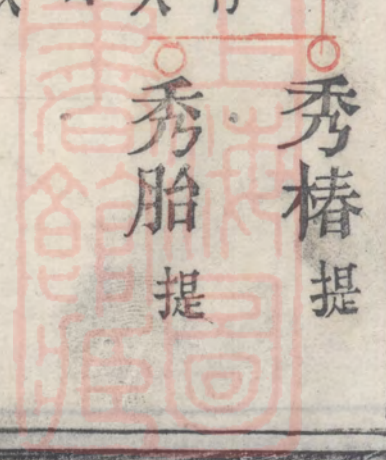 秀椿 提
秀胎 提